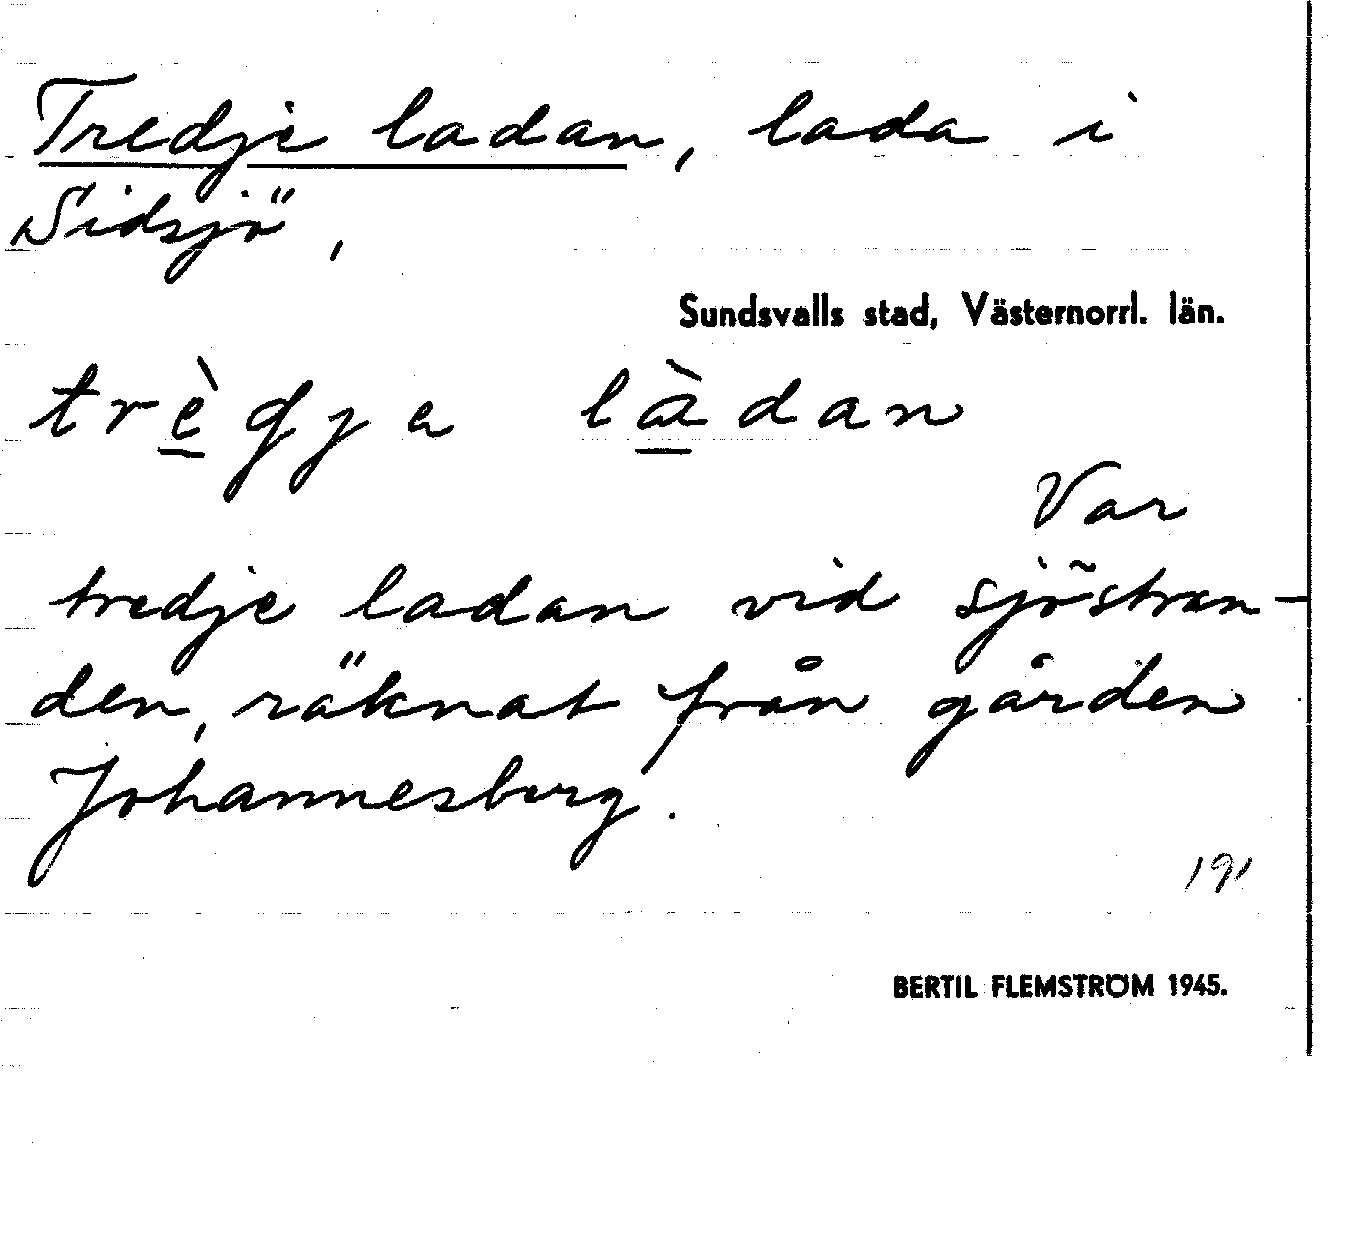 Tredje ladan, lada i
Sidsjö,
Sundsvalls stad, Västernorrl. län.
trè̠gja là̠dan
Var
tredje ladan vid sjöstran-
den, räknat från gården
Johannesberg.
191
BERTIL FLEMSTRÖM 1945.